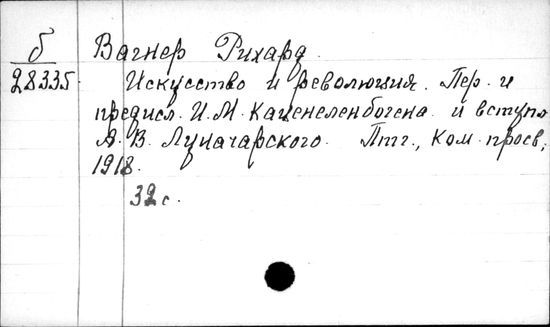 б Вагнер Рихард.
28335. Искусство и революция. Пер. и
предисл. И. М. Каценеленбогена и вступл.
А. В. Луначарского. Птг., Ком. просв.,
1918.
32 с.